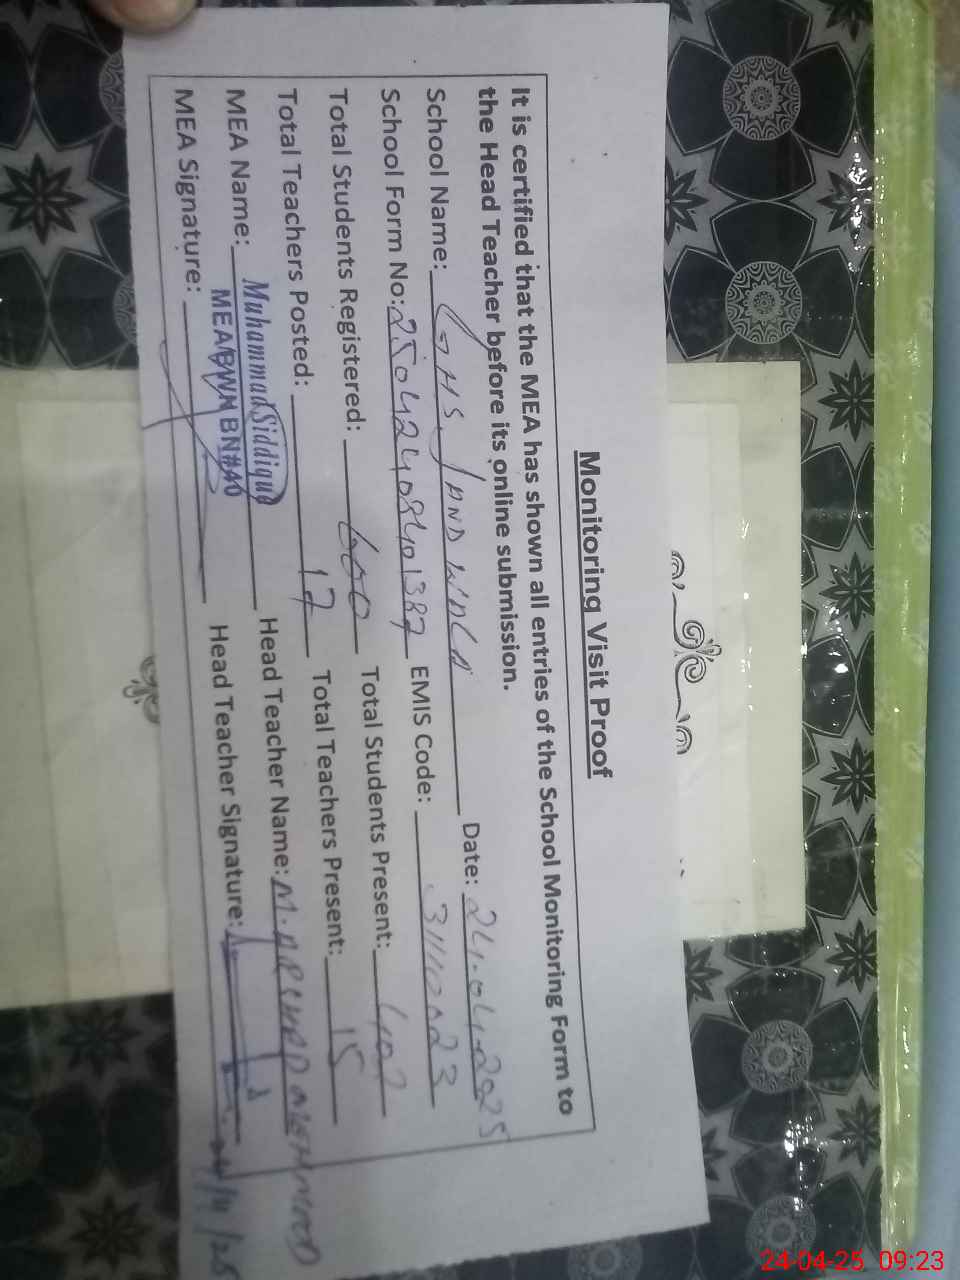 Monitoring Visit Proof
It is certified that the MEA has shown all entries of the School Monitoring Form to
the Head Teacher before its online submission.
School Name: GHS, JAND WALA Date: 24.04.2025
School Form No: EMIS Code: 31110023
Total Students Registered: 600 Total Students Present: 407
Total Teachers Posted: 17 Total Teachers Present: 15
MEA Name: Muhammad Siddique Head Teacher Name: M.
MEA/BWN BN#40
MEA Signature: Head Teacher Signature:
24-04-25 09:23